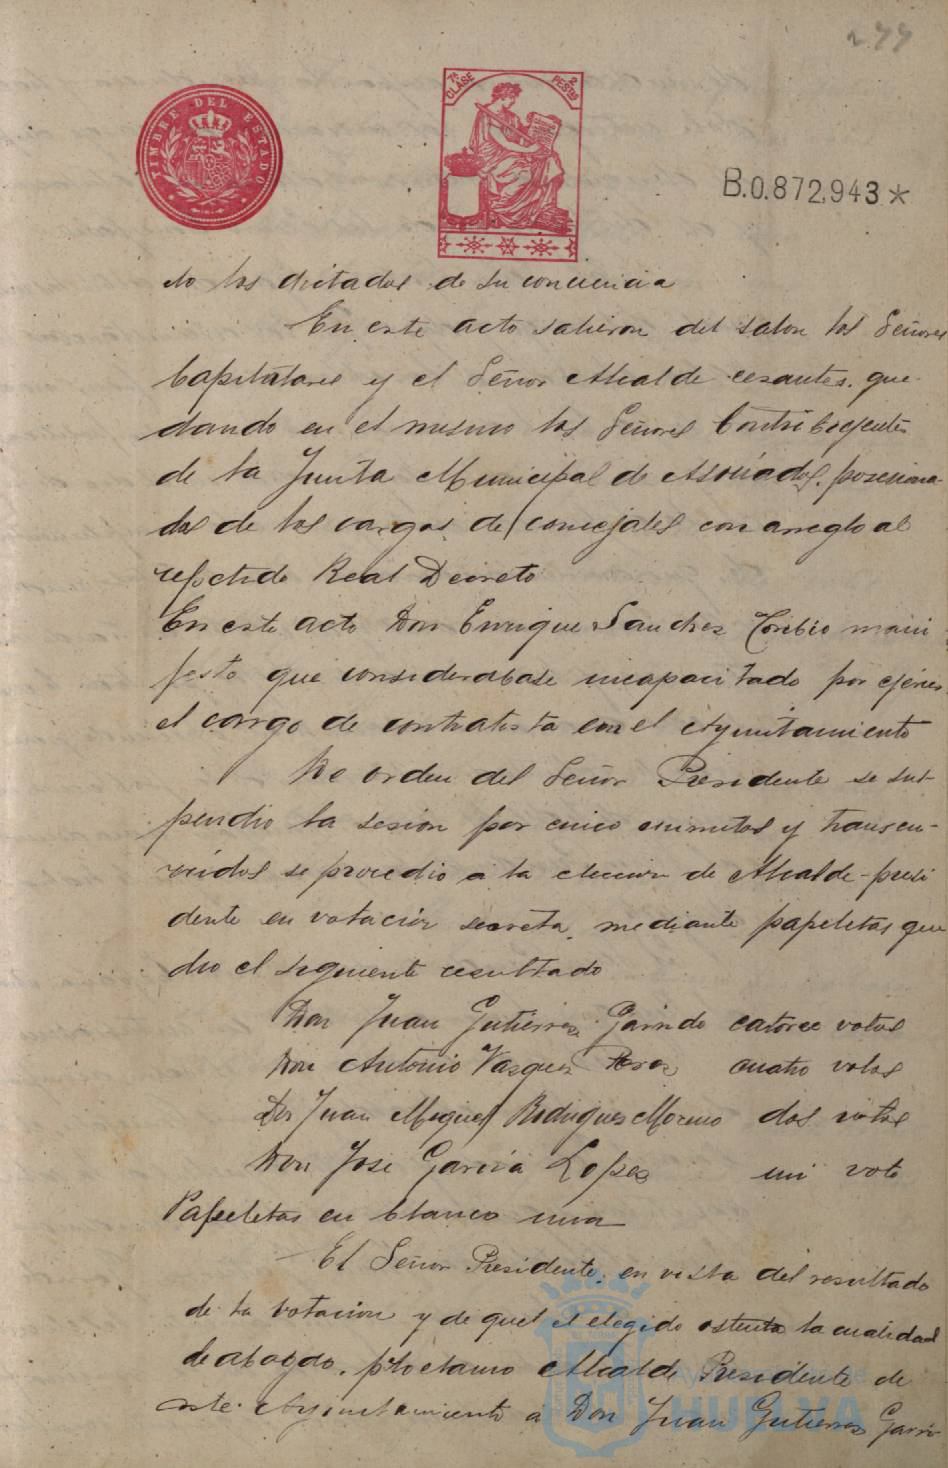 277
TIMBRE DEL ESTADO
7ª CLASE
2 PESTAS
B.0.872,943*
do los dictados de su conciencia
En este acto salieron del salon los Señores
Capitulares y el Señor Alcalde cesantes. que-
dando en el mismo los Señores Contribuyentes
de la Junta Municipal de Asociados. posesiona-
dos de los cargos de concejales con arreglo al
repetido Real Decreto
En este acto Don Enrique Sanchez Toribio mani
festo que considerabase incapacitado por ejercer
el cargo de contratista con el Ayuntamiento
De orden del Señor Presidente se sus-
pendio la sesion por cinco minutos y transcu-
rridos se procedio a la eleccion de Alcalde-presi
dente en votacion secreta, mediante papeletas que
dio el siguiente resultado
Don Juan Gutierrez Garrido catorce votos
Don Antonio Vazquez Perez cuatro votos
Dn Juan Miguel Rodriguez Moreno dos votos
Don Jose Garcia Lopez un voto
Papeletas en blanco una
El Señor Presidente, en vista del resultado
de la votacion y de que el elegido ostenta la cualidad
de abogado, proclamo Alcalde Presidente de
este Ayuntamiento a Don Juan Gutierrez Garri-
HUELVA